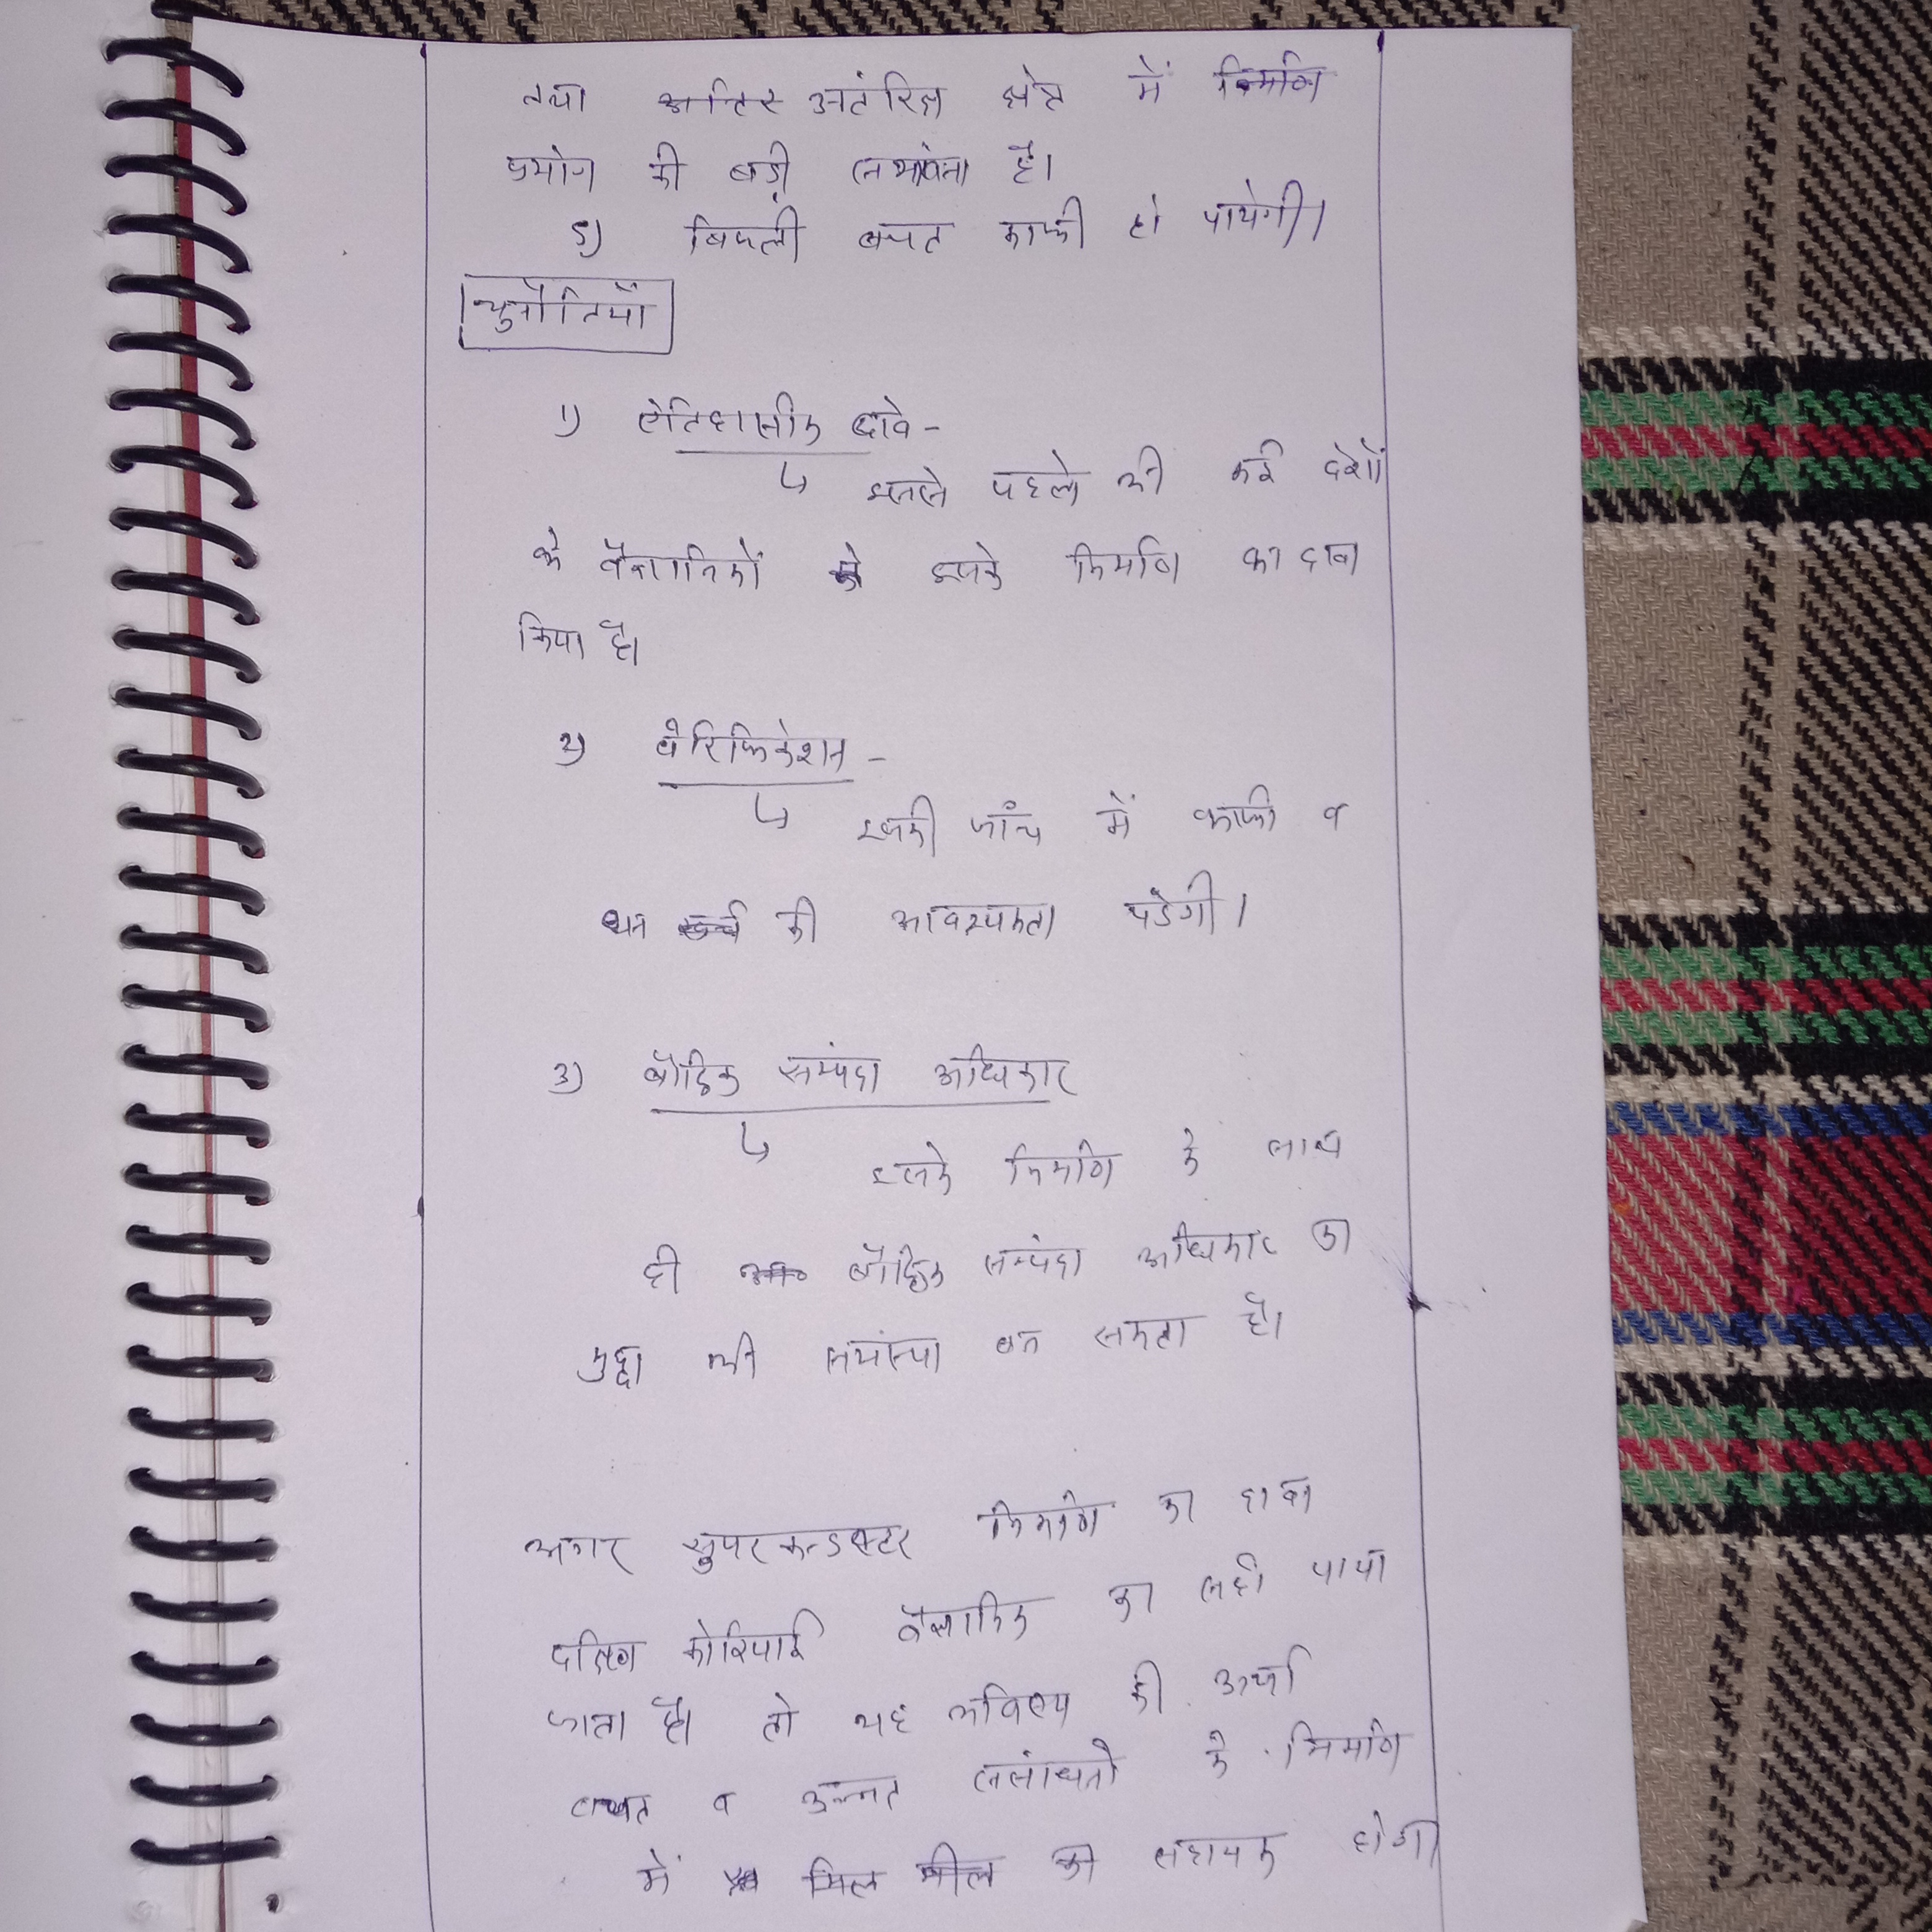 तथा अंतरिक्ष क्षेत्र में निर्माण
प्रयोग की बड़ी सम्भावना है।
5) बिजली बचत काफी हो पायेगी।
चुनौतियाँ
1) ऐतिहासीक दावे -
↳ इससे पहले भी कई देशों
के वैज्ञानिकों ने इसके निर्माण का दावा
किया है।
2) वेरिफिकेशन -
↳ इसकी जाँच में काफी व
धन की आवश्यकता पडेगी।
3) बौद्धिक सम्पंदा अधिकार
↳ इसके निर्माण के साथ
ही बौद्धिक सम्पंदा अधिकार का
मुद्दा भी समस्या बन सकता है।
अगर सुपरकन्डक्टर निर्माण का दावा
दक्षिण कोरियाई वैज्ञानिक का सही पाया
जाता है। तो यह भविष्य की ऊर्जा
बचत व उन्नत संसाधनो के निर्माण
में मील का सहायक होगा